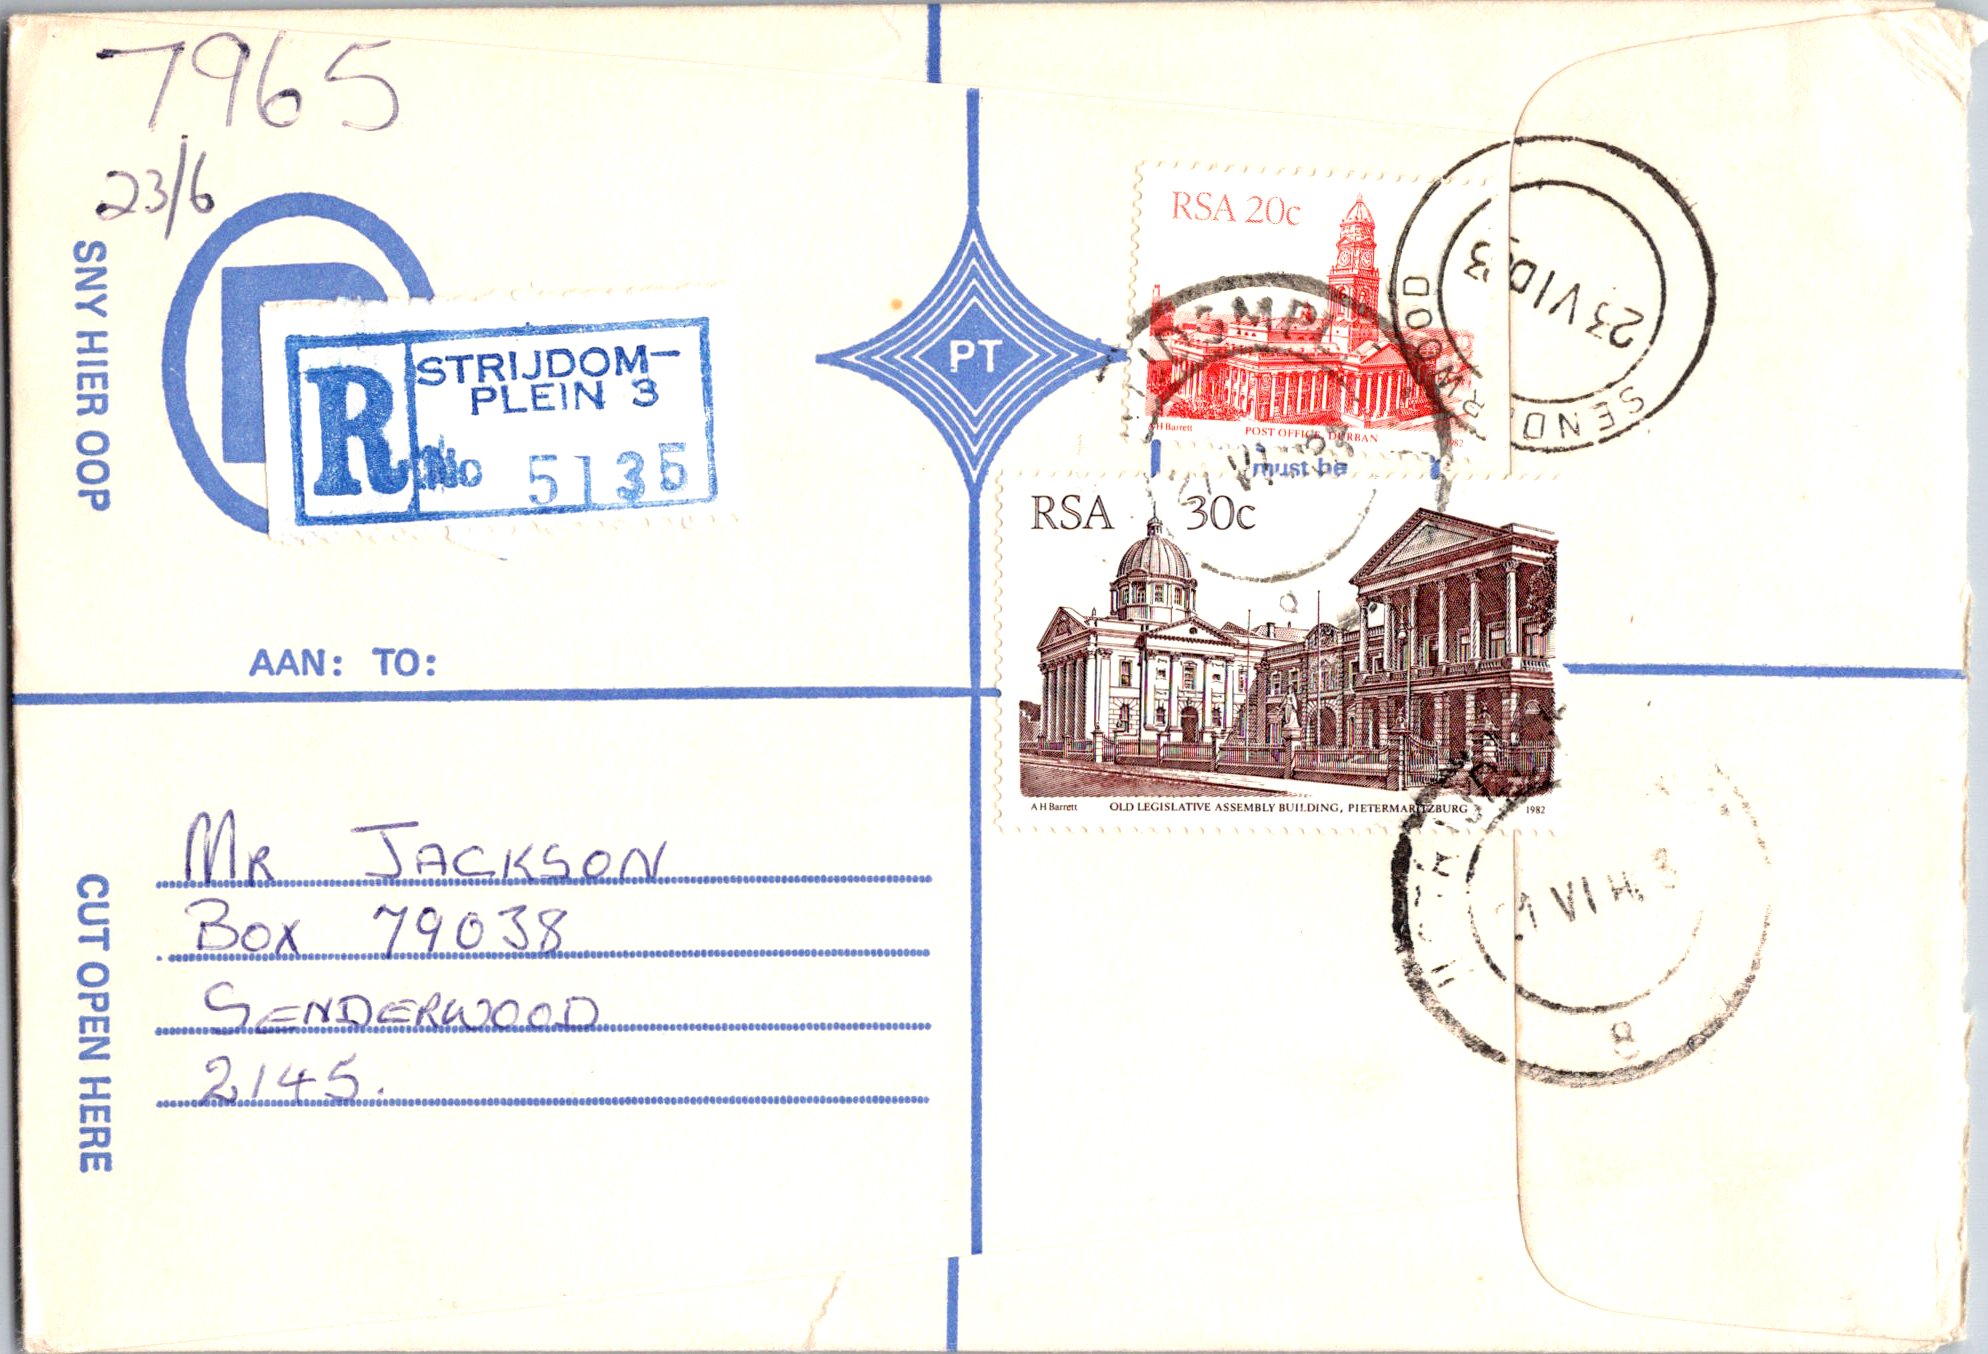 7965
23/6
SNY HIER OOP
R
STRIJDOM-
PLEIN 3
No 5135
PT
RSA 20c
A H Barrett POST OFFICE, DURBAN 1982
must be
SENDERWOOD
23 VI
RSA 30c
A H Barrett OLD LEGISLATIVE ASSEMBLY BUILDING, PIETERMARITZBURG 1982
AAN: TO:
CUT OPEN HERE
MR JACKSON
BOX 79038
SENDERWOOD
2145.
VI
8